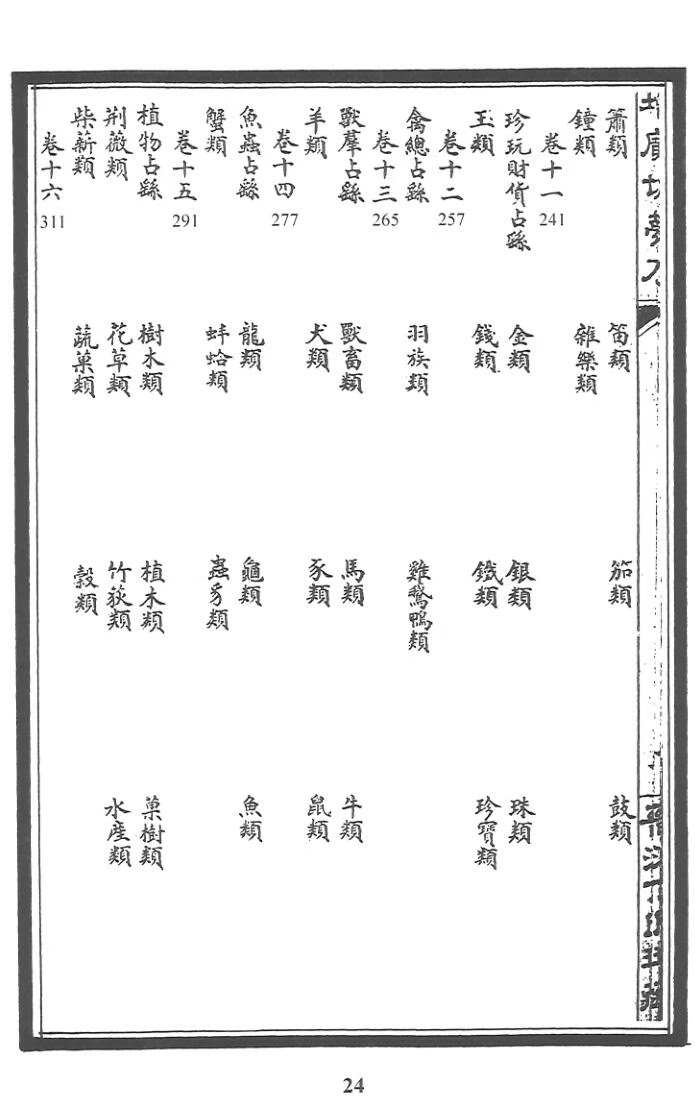 簫類 笛類 笳類 鼓類
鐘類 雜樂類
卷十一 241
珍玩財貨占繇 金類 銀類 珠類
玉類 錢類 鐵類 珍寶類
卷十二 257
禽總占繇 羽族類 雞鵞鴨類
卷十三 265
獸羣占繇 獸畜類 馬類 牛類
羊類 犬類 豕類 鼠類
卷十四 277
魚蟲占繇 龍類 龜類 魚類
蟹類 蚌蛤類 蟲豸類
卷十五 291
植物占繇 樹木類 植木類 菓樹類
荆薇類 花草類 竹荻類 水産類
柴薪類 蔬菓類 穀類
卷十六 311
24